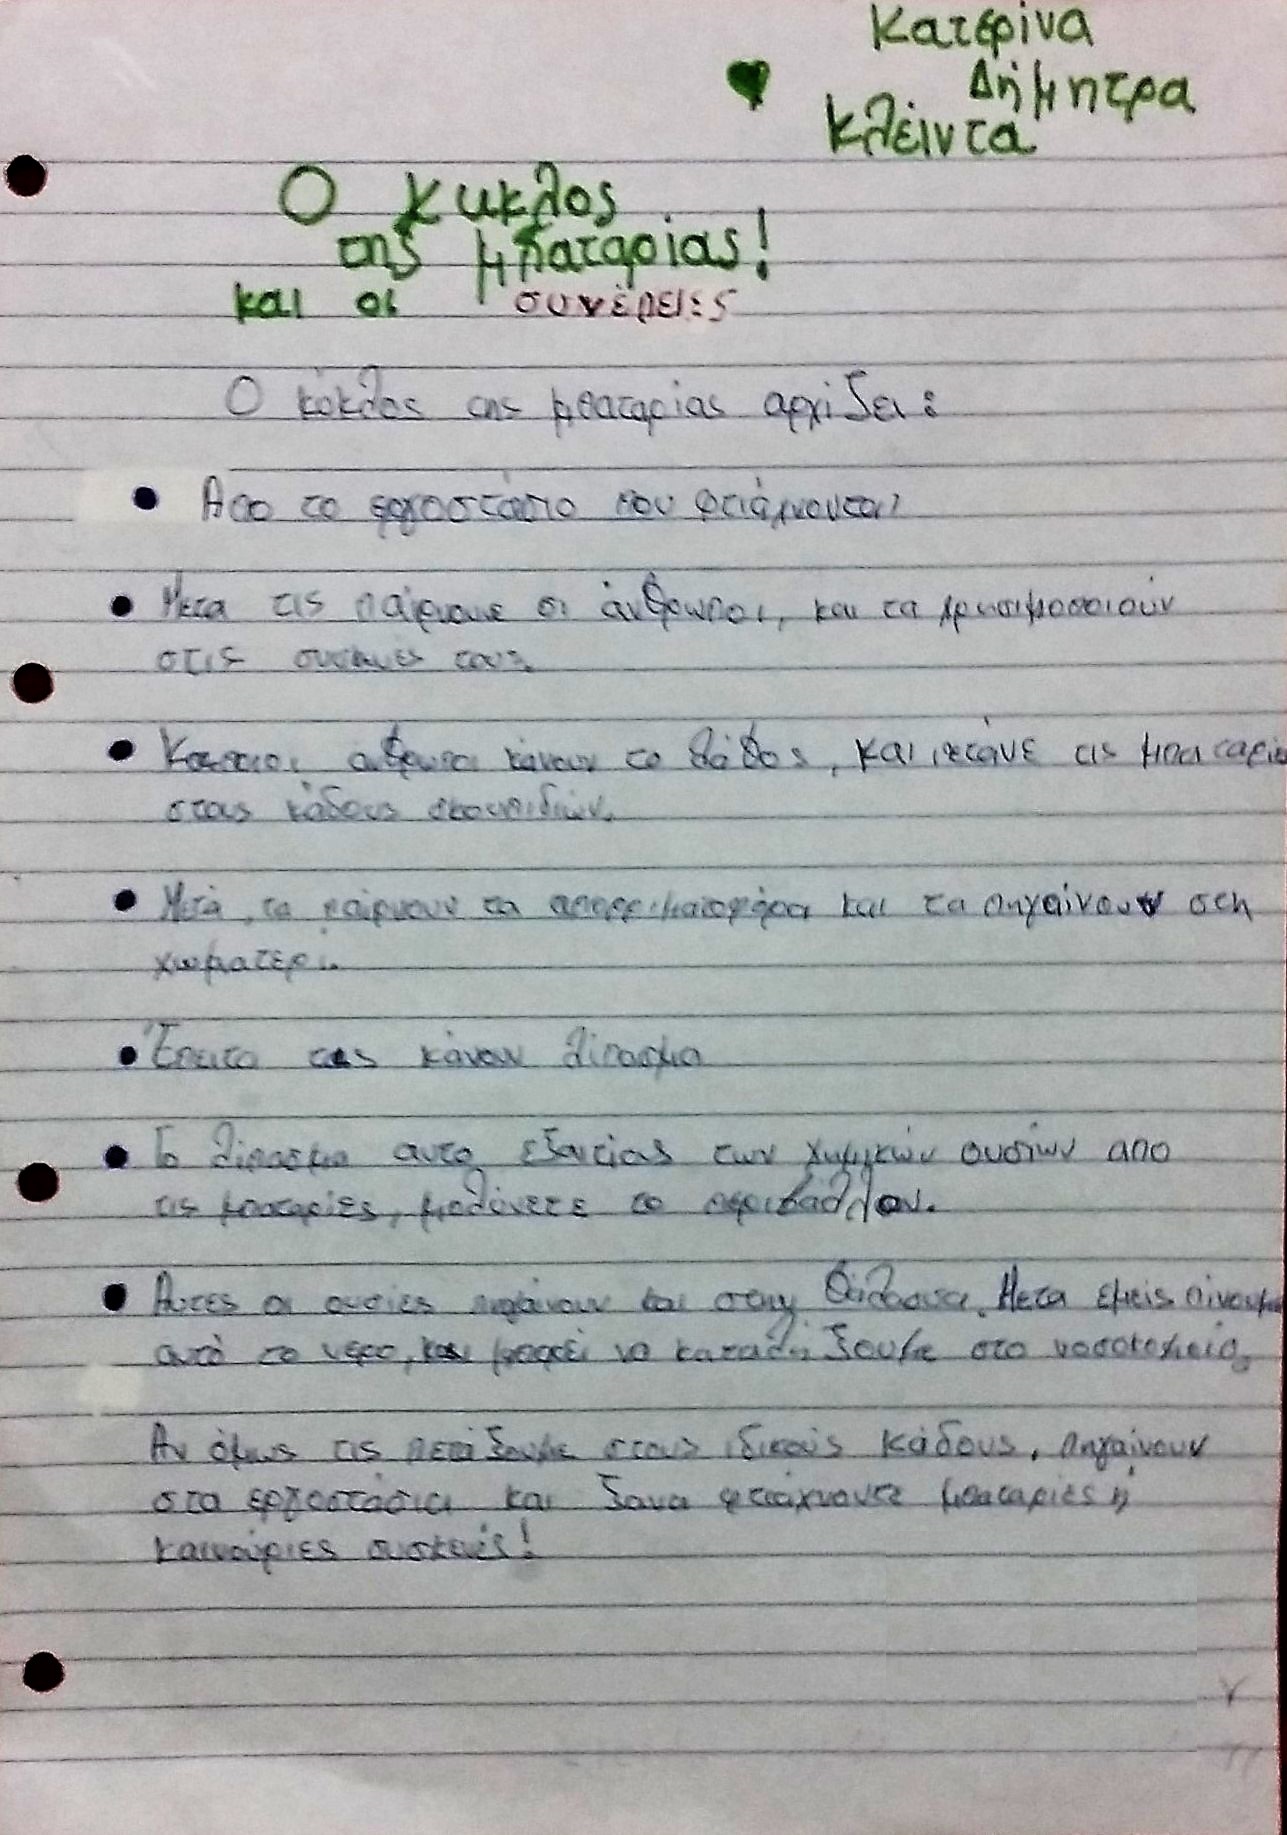 Κατερίνα
Δήμητρα
Κλέιντα
Ο κυκλος
της μπαταρίας!
και οι συνέπειες
Ο κύκλος της μπαταρίας αρχίζει:
Απο το εργοστάσιο που φτιάχνονται
Μετα τις παίρνουνε οι άνθρωποι, και τα χρησιμοποιούν
στις συσκευές τους.
Κάποιοι άνθρωποι κάνουν το λάθος, και πετάνε τις μπαταρίες
στους κάδους σκουπιδιών.
Μετά, τα παίρνουν τα απορριματοφόρα και τα πηγαίνουν στη
χωματερί.
Έπειτα τις κάνουν λίπασμα
Το λίπασμα αυτο εξαιτίας των χημικών ουσιών απο
τις μπαταρίες, μολύνετε το περιβάλλον.
Αυτες οι ουσίες πηγαίνουν και στην θάλασσα. Μετα εμείς πίνουμε
αυτό το νερο, και μπορεί να καταλήξουμε στο νοσοκομείο.
Αν όμως τις πετάξουμε στους ιδικούς κάδους, πηγαίνουν
στα εργοστάσια και ξανα φτιάχνουνε μπαταρίες ή
καινούριες συσκευές!